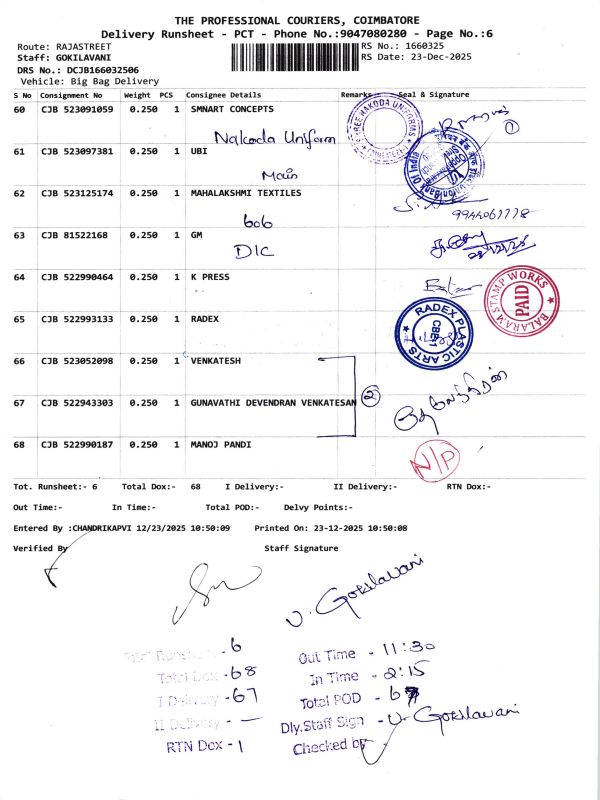 THE PROFESSIONAL COURIERS, COIMBATORE
Delivery Runsheet - PCT - Phone No.:9047080280 - Page No.:6
Route: RAJASTREET RS No.: 1660325
Staff: GOKILAVANI RS Date: 23-Dec-2025
DRS No.: DCJB166032506
Vehicle: Big Bag Delivery
S No Consignment No Weight PCS Consignee Details Remarks Seal & Signature
60 CJB 523091059 0.250 1 SMNART CONCEPTS
SHREE RAKODA UNIFORMS
①
Nakoda Uniform
61 CJB 523097381 0.250 1 UBI
Union Bank Of India
Main
62 CJB 523125174 0.250 1 MAHALAKSHMI TEXTILES
9944061778
bob
63 CJB 81522168 0.250 1 GM
DIC
64 CJB 522990464 0.250 1 K PRESS
BALARAM STAMP WORKS
PAID
65 CJB 522993133 0.250 1 RADEX
RADEX PLASTIC ARTS
CBE-1
66 CJB 523052098 0.250 1 VENKATESH
67 CJB 522943303 0.250 1 GUNAVATHI DEVENDRAN VENKATESAN ②
68 CJB 522990187 0.250 1 MANOJ PANDI
N/P
Tot. Runsheet:- 6 Total Dox:- 68 I Delivery:- II Delivery:- RTN Dox:-
Out Time:- In Time:- Total POD:- Delvy Points:-
Entered By :CHANDRIKAPVI 12/23/2025 10:50:09 Printed On: 23-12-2025 10:50:08
Verified By Staff Signature
U. Gokilavani
Total Runsheet - 6 Out Time - 11:30
Total Dox - 68 In Time - 2:15
I Delivery - 67 Total POD - 67
II Delivery - — Dly.Staff Sign - U. Gokilavani
RTN Dox - 1 Checked by